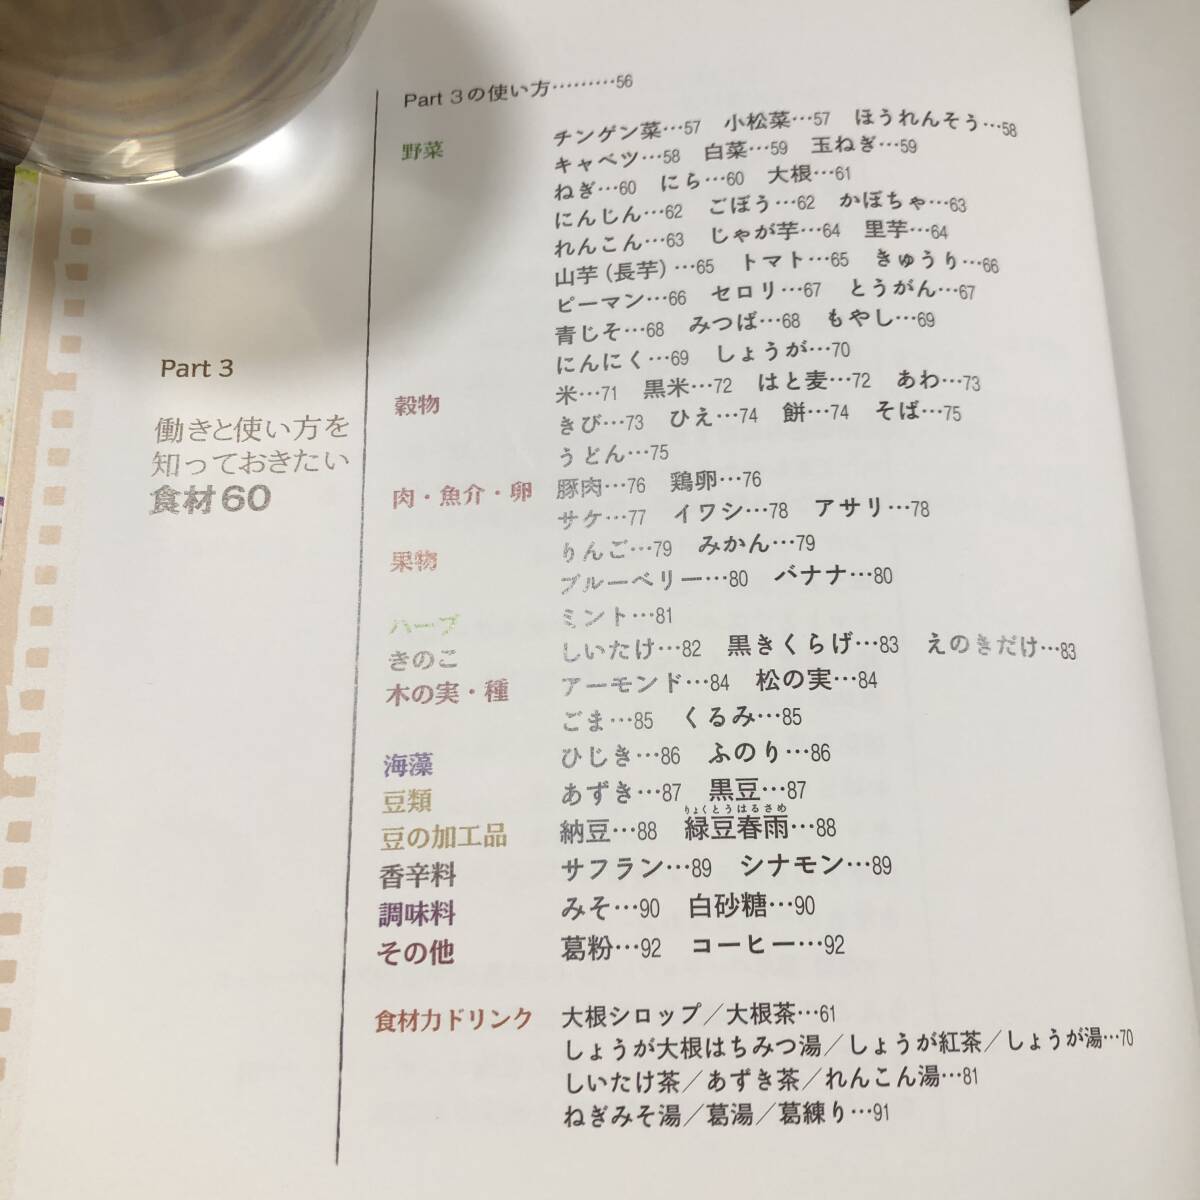 Part 3
働きと使い方を
知っておきたい
食材60
Part 3の使い方………56
野菜 チンゲン菜…57 小松菜…57 ほうれんそう…58
キャベツ…58 白菜…59 玉ねぎ…59
ねぎ…60 にら…60 大根…61
にんじん…62 ごぼう…62 かぼちゃ…63
れんこん…63 じゃが芋…64 里芋…64
山芋（長芋）…65 トマト…65 きゅうり…66
ピーマン…66 セロリ…67 とうがん…67
青じそ…68 みつば…68 もやし…69
にんにく…69 しょうが…70
穀物 米…71 黒米…72 はと麦…72 あわ…73
きび…73 ひえ…74 餅…74 そば…75
うどん…75
肉・魚介・卵 豚肉…76 鶏卵…76
サケ…77 イワシ…78 アサリ…78
果物 りんご…79 みかん…79
ブルーベリー…80 バナナ…80
ハーブ ミント…81
きのこ しいたけ…82 黒きくらげ…83 えのきだけ…83
木の実・種 アーモンド…84 松の実…84
ごま…85 くるみ…85
海藻 ひじき…86 ふのり…86
豆類 あずき…87 黒豆…87
りょくとうはるさめ
豆の加工品 納豆…88 緑豆春雨…88
香辛料 サフラン…89 シナモン…89
調味料 みそ…90 白砂糖…90
その他 葛粉…92 コーヒー…92
食材力ドリンク 大根シロップ／大根茶…61
しょうが大根はちみつ湯／しょうが紅茶／しょうが湯…70
しいたけ茶／あずき茶／れんこん湯…81
ねぎみそ湯／葛湯／葛練り…91